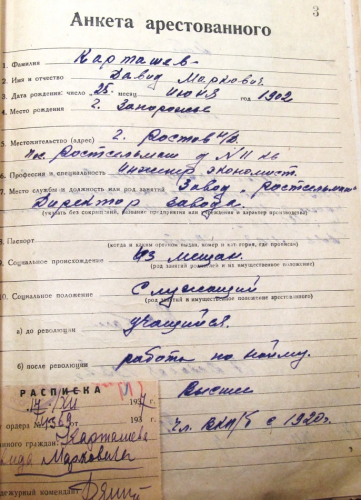 3
Анкета арестованного
1. Фамилия Карташев
2. Имя и отчество Давид Маркович
3. Дата рождения: число „25“ месяц июня год 1902
4. Место рождения г. Запорожье
5. Местожительство (адрес) г. Ростов н/Д.
пос. Ростсельмаш д № 11 кв
6. Профессия и специальность Инженер экономист.
7. Место службы и должность или род занятий Завод „Ростсельмаш“
Директор завода.
(указать без сокращений, название предприятия или учреждения и характер производства)
8. Паспорт
(когда и каким органом выдан, номер и кат. горки, где прописан)
9. Социальное происхождение Из мещан.
(род занятий родителей и их имущественное положение)
10. Социальное положение Служащий
(род занятий и имущественное положение арестованного)
а) до революции учащийся.
б) после революции работа по найму.
Высшее
Чл. ВКП/б с 1920г.
РАСПИСКА
17/XII 1937
ордера № 1369 1937 г.
нного граждан. Карташева
Марковича
дежурный комендант